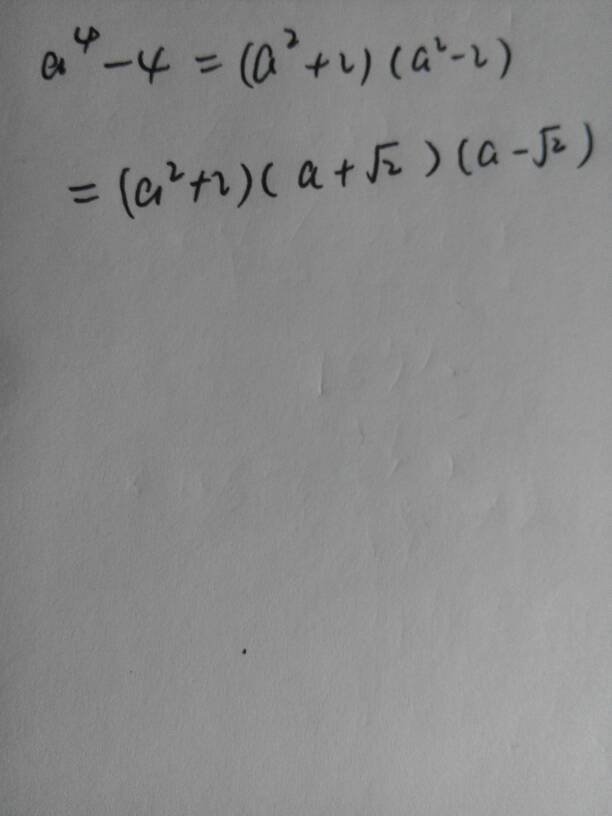 a⁴-4=(a²+2)(a²-2)
=(a²+2)(a+√2)(a-√2)